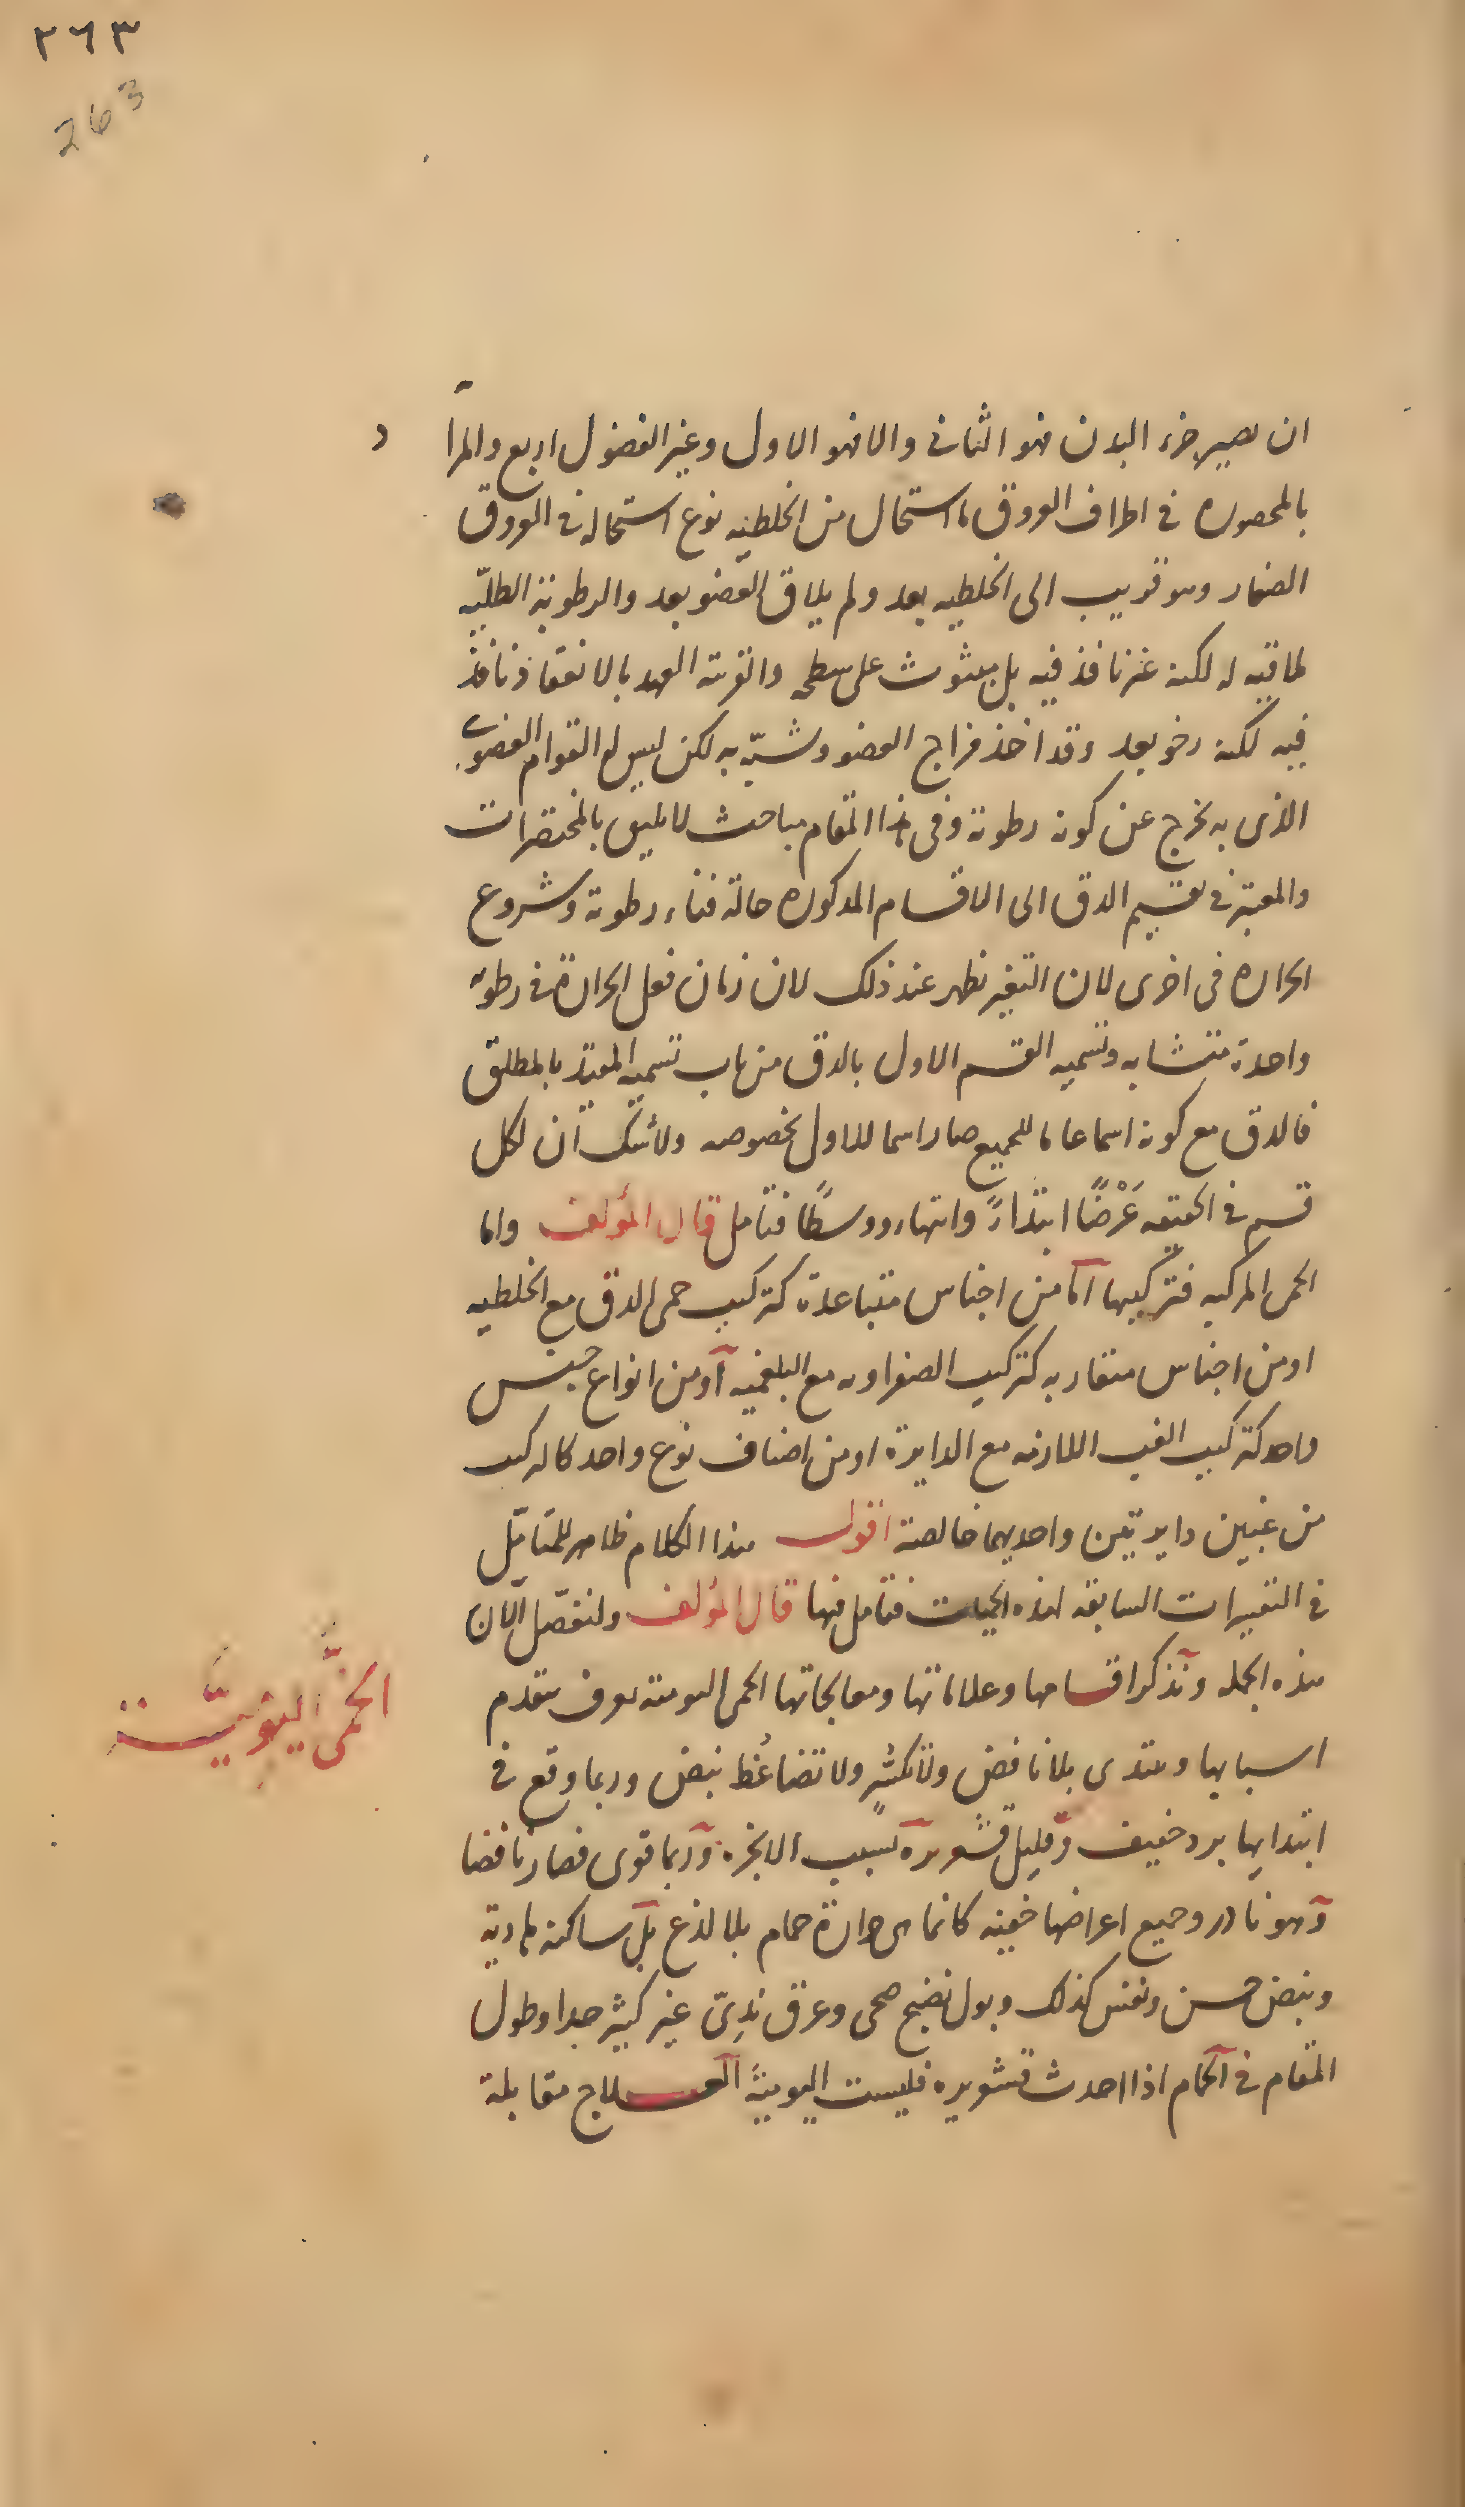 ٢٦٣
263
ان يصير جزء البدن فهو الثانى والا فهو الاول وغير الفضول اربع والمراد
بالمحصورة فى اطراف العروق ما استحال من الخلطيه نوع استحالة فى العروق
الصغار وهو قريب الى الخلطيه بعد ولم يلاق العضو بعد والرطوبة الطلّيه
ملاقيه له لكنه غير نافذ فيه بل مبثوث على سطحه والقريبة العهد بالانعقاد نافذ
فيه لكنه رخو بعد وقد اخذ مزاج العضو وشبّه به لكن ليس له القوام العضوى
الذى به يخرج عن كونه رطوبة وفى هذا المقام مباحث لا يليق بالمختصرات
والمعتبر فى تقسيم الدق الى الاقسام المذكوره حالة فناء رطوبة وشروع
الحراره فى اخرى لان التغير يظهر عند ذلك لان زمان فعل الحرارة فى رطوبه
واحدة متشابه وتسميه القسم الاول بالدق من باب تسميه المقيد بالمطلق
فالدق مع كونه اسما عاما للجميع صار اسما للاول بخصوصه ولا شك ان لكل
قسم فى الحقيقه عَرْضًا ابتداءً وانتهاء ووسطًا فتامل قال المؤلف واما
الحمى المركبه فتركيبها اما من اجناس متباعدة كتركيب حمى الدق مع الخلطيه
او من اجناس متقاربه كتركيب الصفراويه مع البلغميه او من انواع جنس
واحد كتركيب الغب اللازمه مع الدايرة او من اصناف نوع واحد كالمركب
من غبين دايرتين واحديهما خالصة اقول هذا الكلام ظاهر للمتامّل
فى التقسيمات السابقه لهذه الحميات فتامل فيها قال المؤلف ولنفصّل الآن
هذه الجمله ونذكر اقسامها وعلاماتها ومعالجاتها الحمى اليوميه يعرف بتقدم
الحُمَّى اليَوْميَّة
اسبابها ويبتدى بلا نافض ولا تكسُّر ولا تضاغُط نبض وربما وقع فى
ابتدايها برد خفيف وقليل قشعريره بسبب الابخره وربما قوى فصار نافضا
وهو نادر وجميع اعراضها خفيفه كانما هى حرارة حمام بلا لذع بل ساكنة هادية
ونبض حسن ونفس كذلك وبول نضيج صحى وعرق نَدِىّ غير كثير جدا وطول
المقام فى الحمام اذا احدث قشعريره فليست اليوميةً العلاج مقابلة